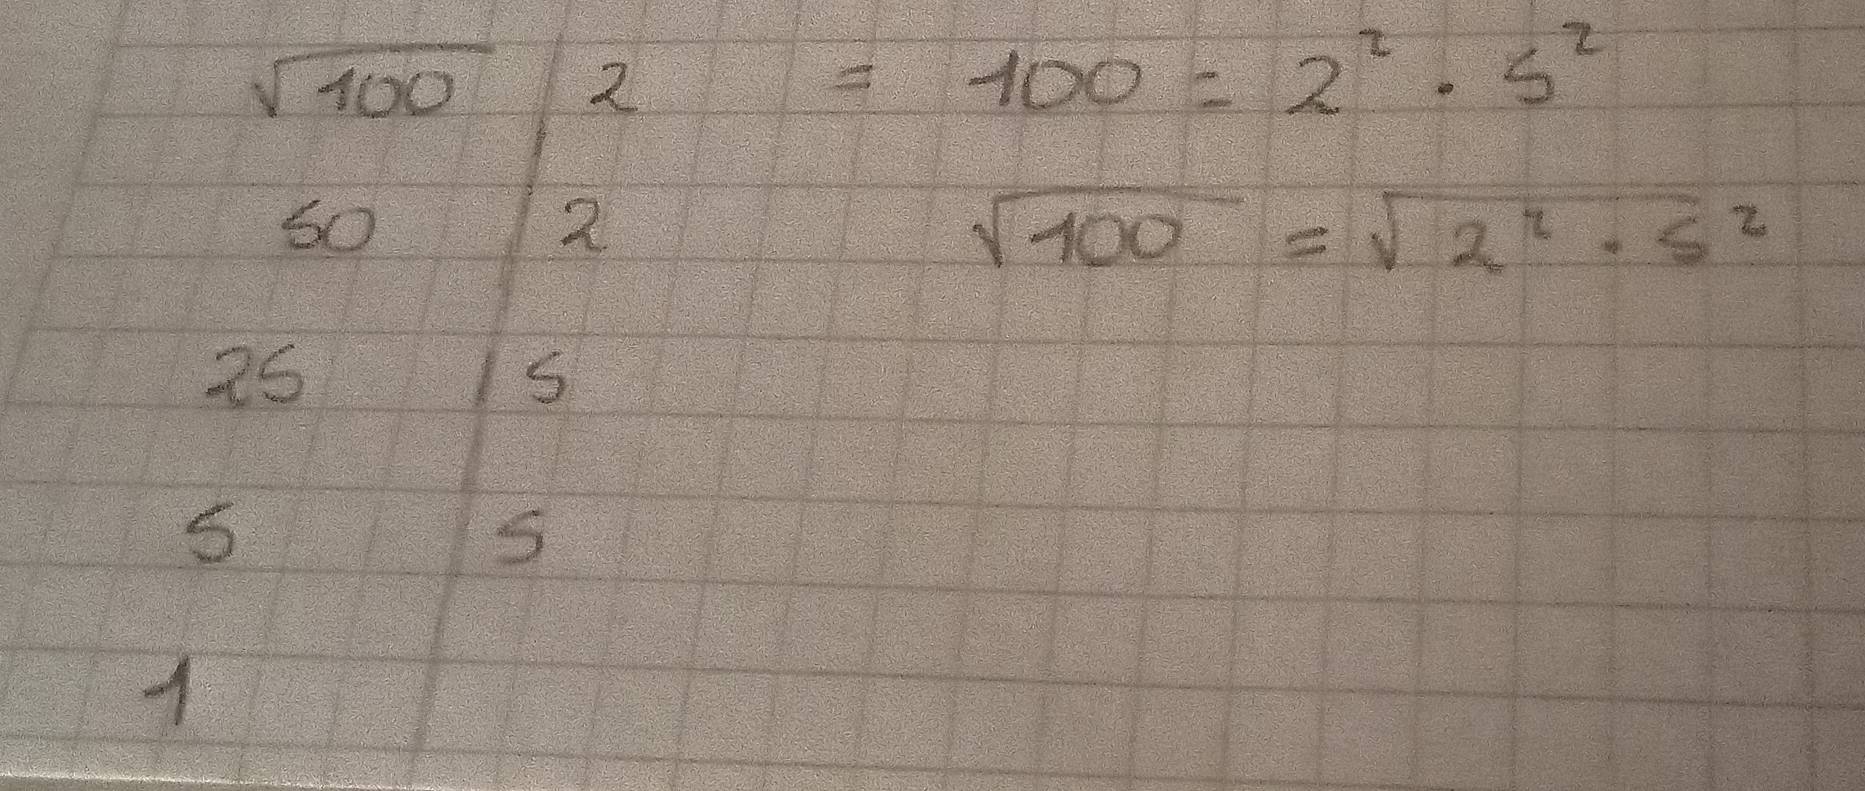 √100 | 2 = 100 = 2² · 5²
50 | 2 √100 = √2² · 5²
25 | 5
5 | 5
1